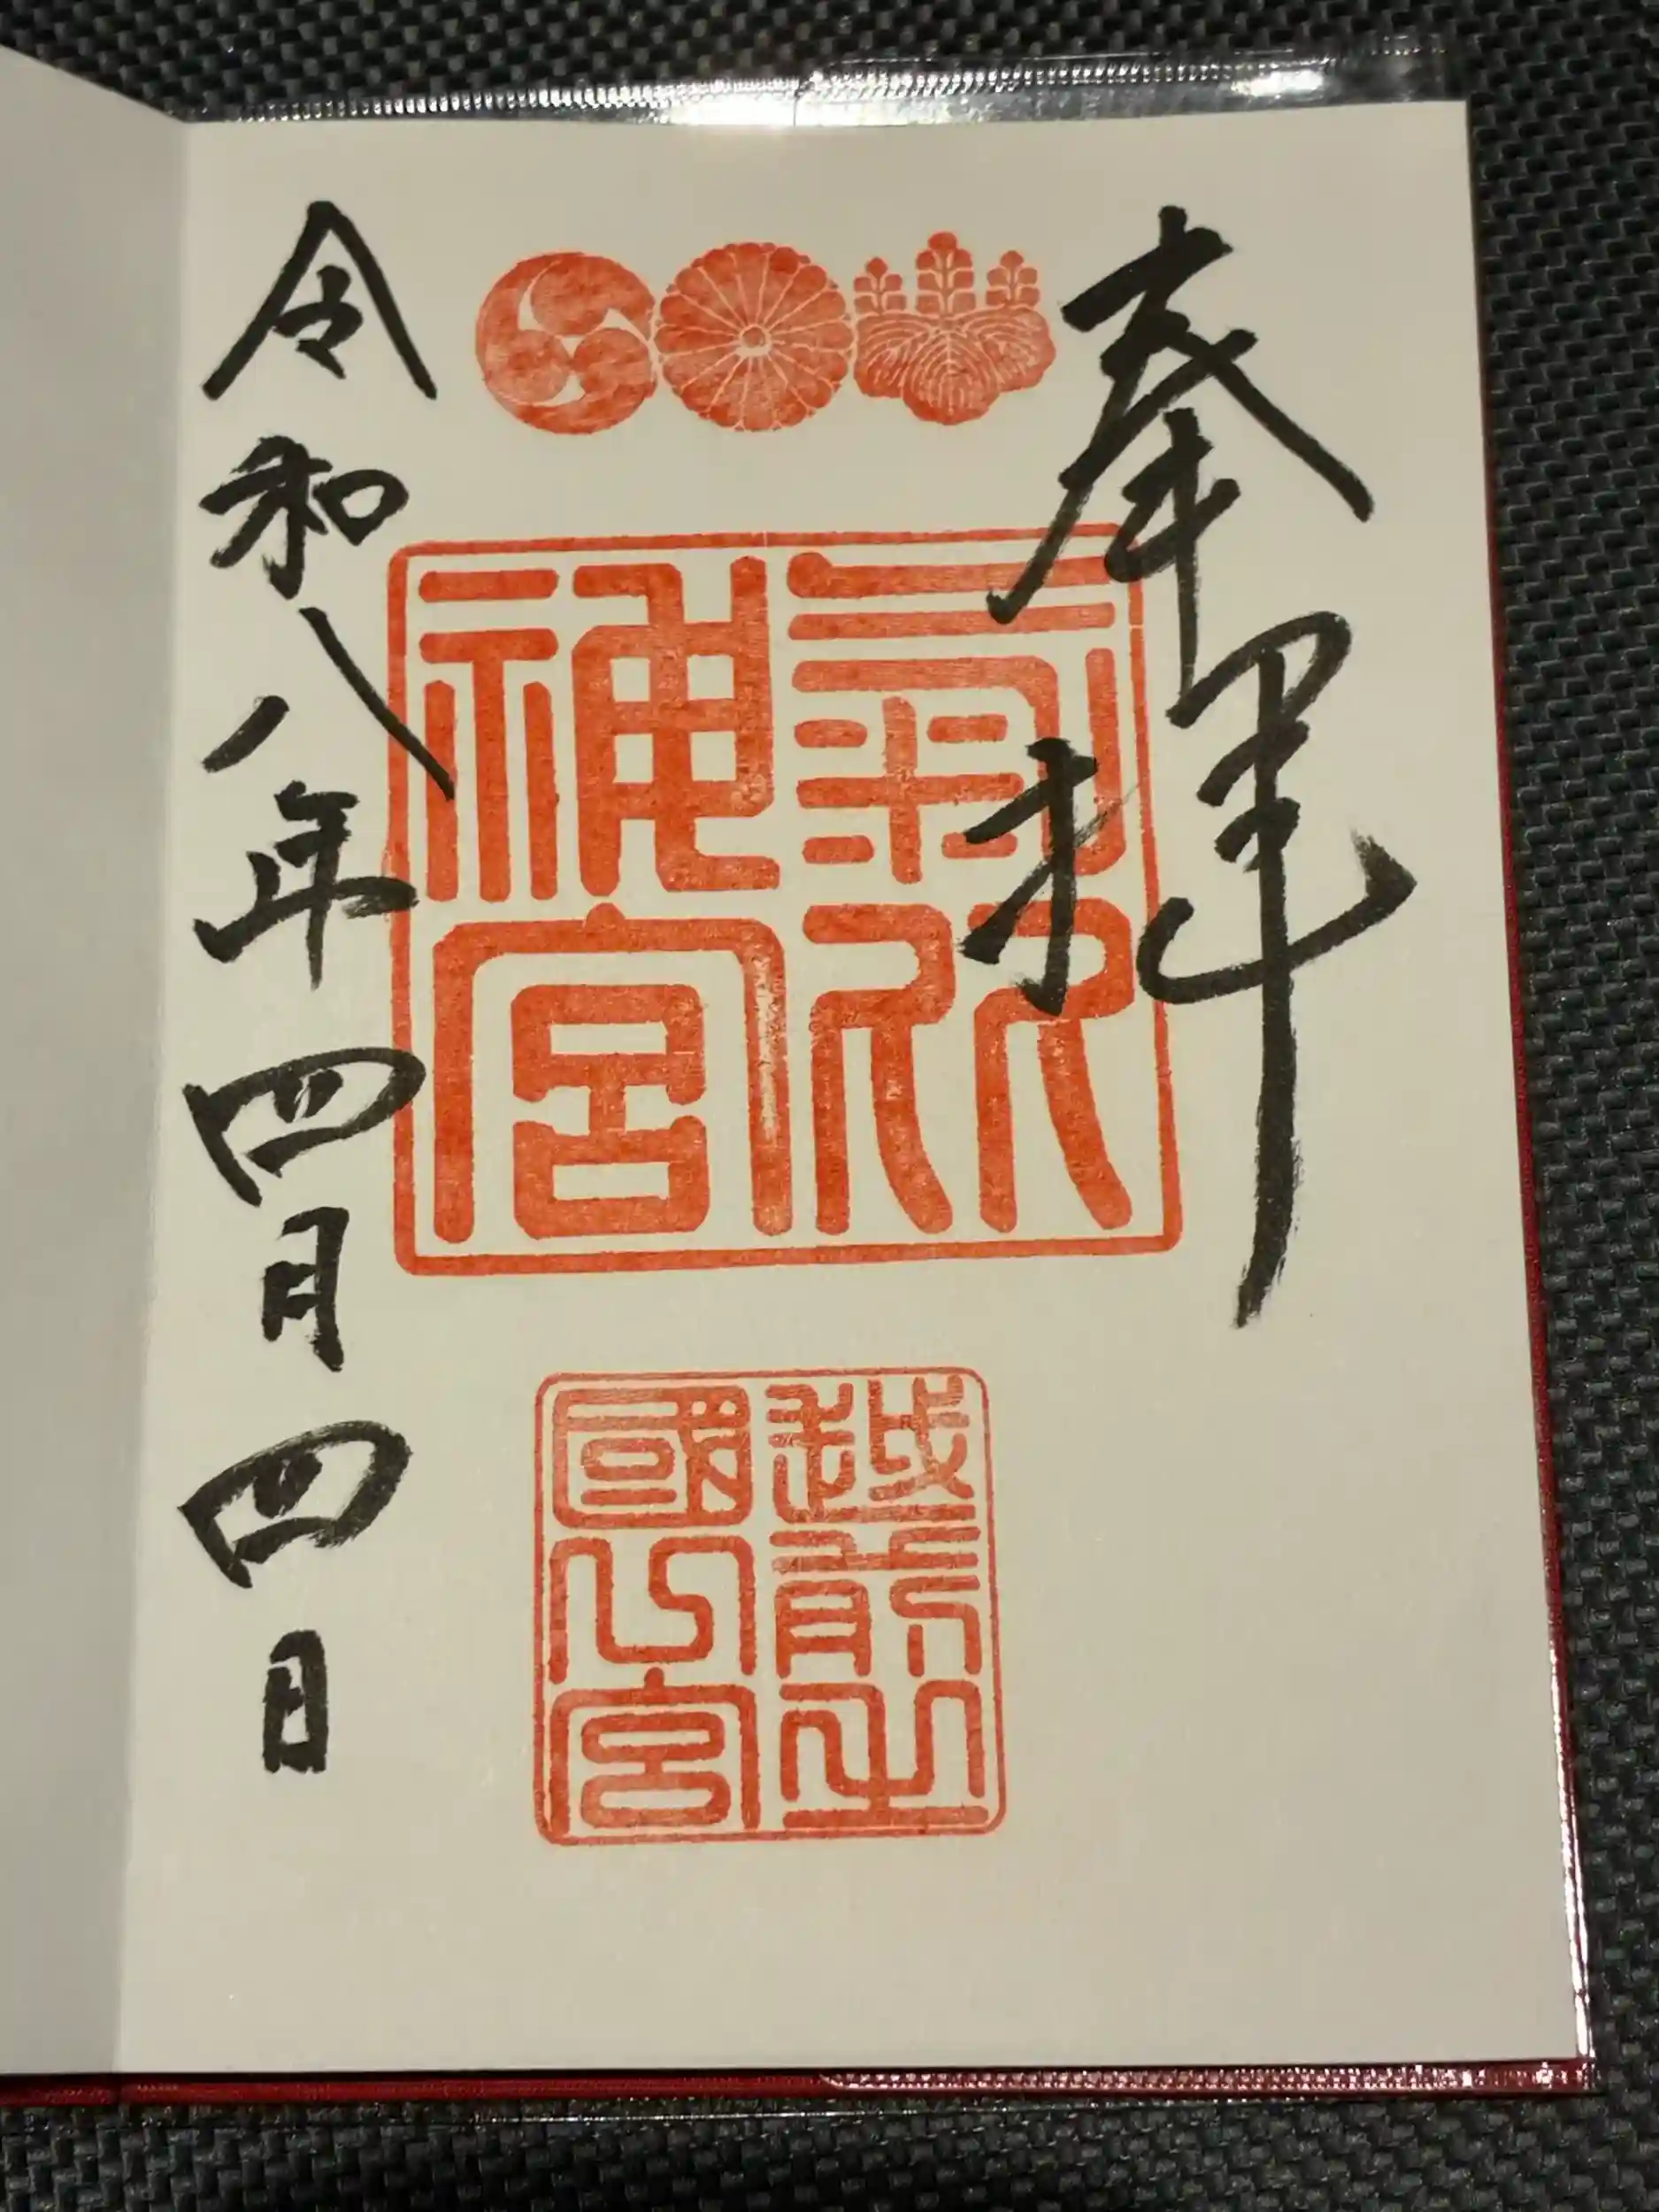 奉拝
氣比
神宮
越前之
國宮
令和八年四月四日